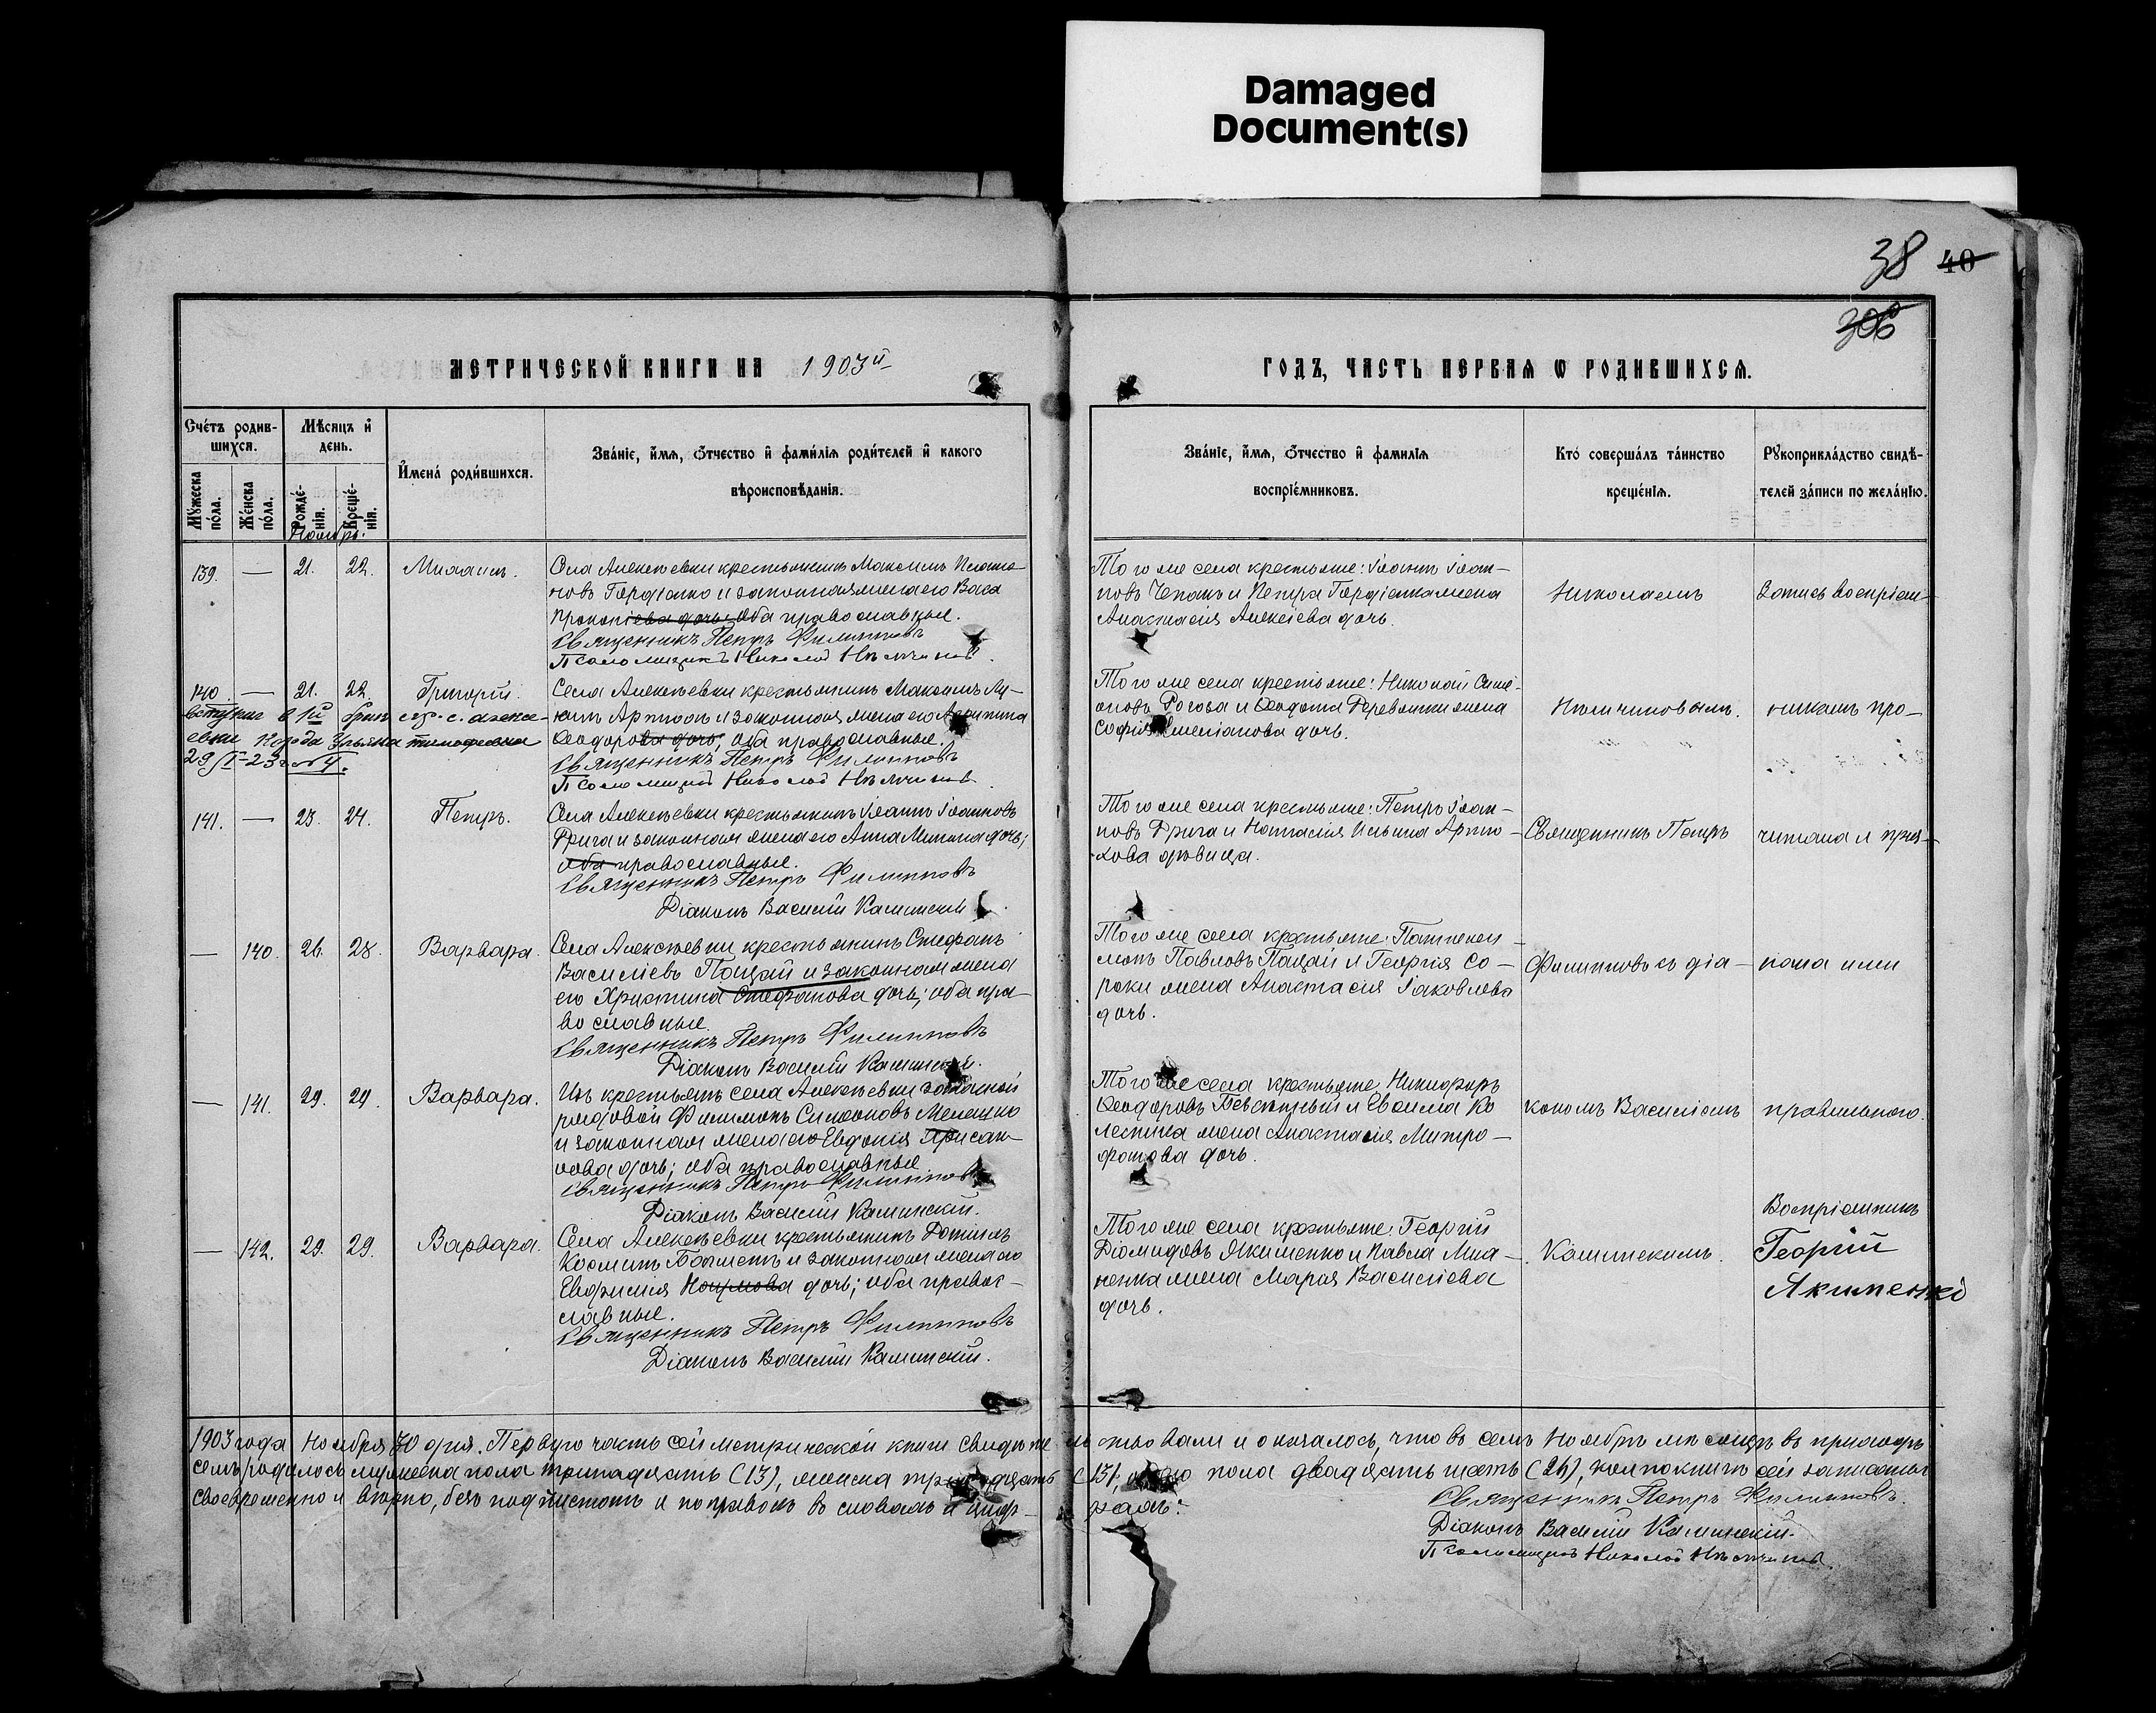 Damaged
Document(s)
38 40
306
МЕТРИЧЕСКОЙ КНИГИ НА 1903й
ГОДЪ, ЧАСТЬ ПЕРВАЯ Ѡ РОДИВШИХСЯ.
Счетъ родив-
шихся.
Мужеска пола.
Женска пола.
Мѣсяцъ и
день.
Рожде-
нія.
Креще-
нія.
Имена родившихся.
Званіе, имя, отчество и фамилія родителей и какого
вѣроисповѣданія.
Званіе, имя, отчество и фамилія
воспріемниковъ.
Кто совершалъ таинство
крещенія.
Рукоприкладство свидѣ-
телей записи по желанію.
Ноябрь.
139. — 21. 22. Михаилъ.
Села Алексѣевки крестьянинъ Максимъ
новъ Гордіенко и законная жена его Васса
Прокопіева дочь; оба православные.
Священникъ Петръ Филипповъ
Псаломщикъ Николай Нѣмчиновъ.
Того же села крестьяне: Іоаннъ Іоан-
новъ Чепакъ и Петра Гордіенка жена
Анастасія Алексіева дочь.
Николаемъ
Запись воспріем-
140. — 21. 22. Григорій.
Села Алексѣевки крестьянинъ Максимъ Лу-
кинъ Артюхъ и законная жена его Агрипина
Ѳеодорова дочь; оба православные.
Священникъ Петръ Филипповъ
Псаломщикъ Николай Нѣмчиновъ
вступил в 1й брак с гр. с. алексе-
евки Ульяна тимофеевна
Того же села крестьяне: Николай Симе-
оновъ Рогоза и Ѳеодота Деревянки жена
Софія Емеліанова дочь.
Нѣмчиновымъ.
никамъ про-
141. — 23. 24. Петръ.
Села Алексѣевки крестьянинъ Іоаннъ Іоанновъ
Дрига и законная жена его Анна Минина дочь;
оба православные.
Священникъ Петръ Филипповъ
Діаконъ Василій Калинскій.
Того же села крестьяне: Петръ Іоан-
новъ Дрига и Наталія Ильина Артю-
хова дѣвица.
Священникъ Петръ
читана и приз-
— 140. 26. 28. Варвара.
Села Алексѣевки крестьянинъ Стефанъ
Василіевъ Пацай и законная жена
его Христина Стефанова дочь; оба пра-
вославные.
Священникъ Петръ Филипповъ
Діаконъ Василій Калинскій.
Того же села крестьяне: Пантелеи-
монъ Павловъ Пацай и Георгія Со-
роки жена Анастасія Іаковлева
дочь.
Филипповъ съ діа-
нана ими
— 141. 29. 29. Варвара.
Изъ крестьянъ села Алексѣевки запасной
рядовой Филимонъ Симеоновъ Мелешко
и законная жена его Евдокія Хрисан-
ѳова дочь; оба православные.
Священникъ Петръ Филипповъ
Діаконъ Василій Калинскій.
Того же села крестьяне: Никифоръ
Ѳеодоровъ и Ко
жена Анастасія Митро-
фанова дочь.
кономъ Василіемъ
правильною.
— 142. 29. 29. Варвара.
Села Алексѣевки крестьянинъ
Косминъ и законная жена его
Евфимія Наумова дочь; оба правос-
славные.
Священникъ Петръ Филипповъ
Діаконъ Василій Калинскій.
Того же села крестьяне: Георгій
Діомидовъ Якименко и Павла
ненка жена Марія Василіева
дочь.
Калинскимъ.
Воспріемникъ
Георгій
Якименко
1903 года Ноября 30 дня. Первую часть сей метрической книги свидѣтельствовали и оказалось, что въ семъ Ноябрѣ мѣсяцѣ въ приходѣ
семъ родилось мужеска пола тринадцать (13), женска тринадцать (13), обоего пола двадцать шесть (26), кои по книгѣ сей записаны
своевременно и вѣрно, безъ подчистокъ и поправокъ въ словахъ и циф-
рахъ.
Священникъ Петръ Филипповъ.
Діаконъ Василій Калинскій.
Псаломщикъ Николай Нѣмчиновъ.